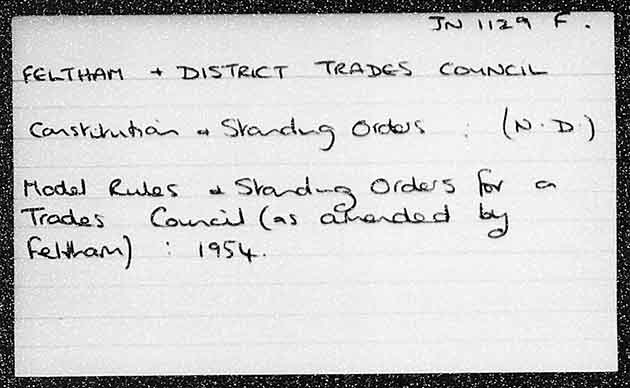 JN 1129 F.
FELTHAM + DISTRICT TRADES COUNCIL
Constitution + Standing Orders : (N.D.)
Model Rules + Standing Orders for a
Trades Council (as amended by
Feltham) : 1954.